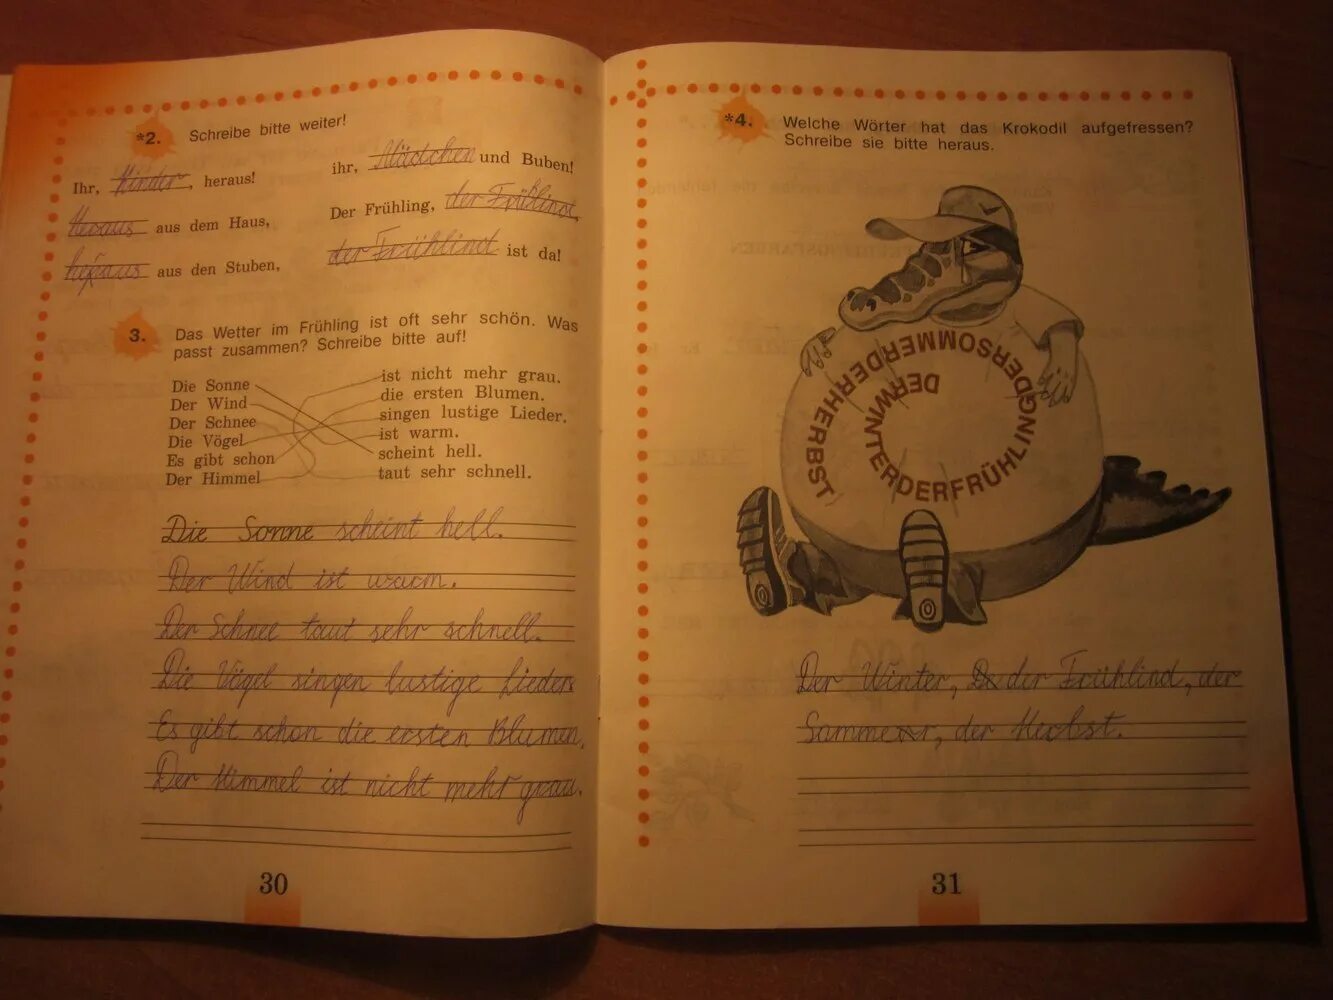 *2. Schreibe bitte weiter!
Ihr, Kinder, heraus!
Heraus aus dem Haus,
heraus aus den Stuben,
ihr, Mädchen und Buben!
Der Frühling, der Frühlind,
der Frühlind ist da!
3. Das Wetter im Frühling ist oft sehr schön. Was
passt zusammen? Schreibe bitte auf!
Die Sonne
Der Wind
Der Schnee
Die Vögel
Es gibt schon
Der Himmel
ist nicht mehr grau.
die ersten Blumen.
singen lustige Lieder.
ist warm.
scheint hell.
taut sehr schnell.
Die Sonne scheint hell.
Der Wind ist warm.
Der Schnee taut sehr schnell.
Die Vögel singen lustige Lieder.
Es gibt schon die ersten Blumen.
Der Himmel ist nicht mehr grau.
30
*4. Welche Wörter hat das Krokodil aufgefressen?
Schreibe sie bitte heraus.
DERWINTERDERFRÜHLINGDERSOMMERDERHERBST
Der Winter, der Frühlind, der
Sommer, der Herbst.
31